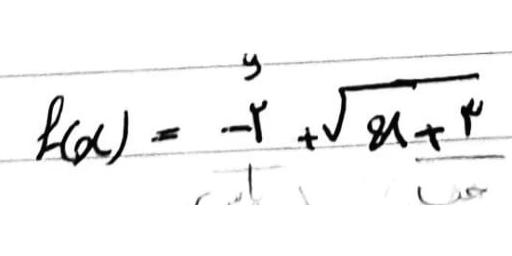 y
f(x) = -۲ + √x+۳